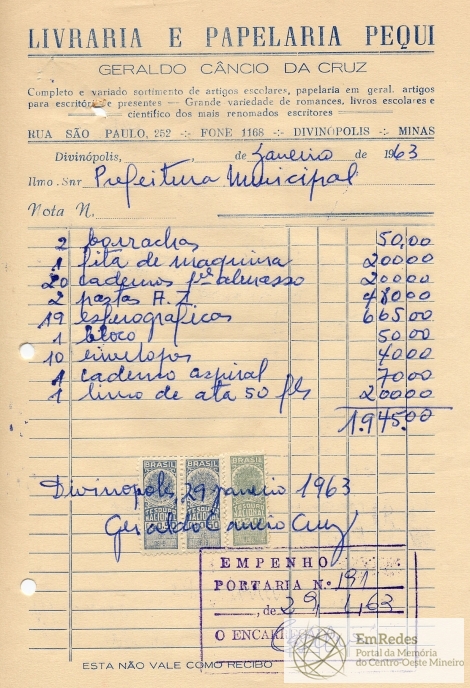 LIVRARIA E PAPELARIA PEQUI
GERALDO CÂNCIO DA CRUZ
Completo e variado sortimento de artigos escolares, papelaria em geral, artigos
para escritório e presentes — Grande variedade de romances, livros escolares e
científico dos mais renomados escritores
RUA SÃO PAULO, 252 -:- FONE 1168 -:- DIVINÓPOLIS -:- MINAS
Divinópolis, de Janeiro de 1963
Ilmo. Snr Prefeitura Municipal
Nota N.
2 borrachas 50,00
1 fita de maquina 200,00
20 cadernos pº almasso 200,00
2 pastas A. Z 480,00
19 esferograficas 665,00
1 bloco 50,00
10 envelopes 40,00
1 caderno aspiral 70,00
1 livro de ata 50 fls 200,00
1.945,00
BRASIL BRASIL BRASIL
TESOURO NACIONAL TESOURO NACIONAL TESOURO NACIONAL
Divinopolis 29 janeiro 1963
Geraldo Cancio Cruz
EMPENHO
PORTARIA N.º 191
, de 29 1 63
O ENCAR
ESTA NÃO VALE COMO RECIBO
EmRedes
Portal da Memória
do Centro-Oeste Mineiro